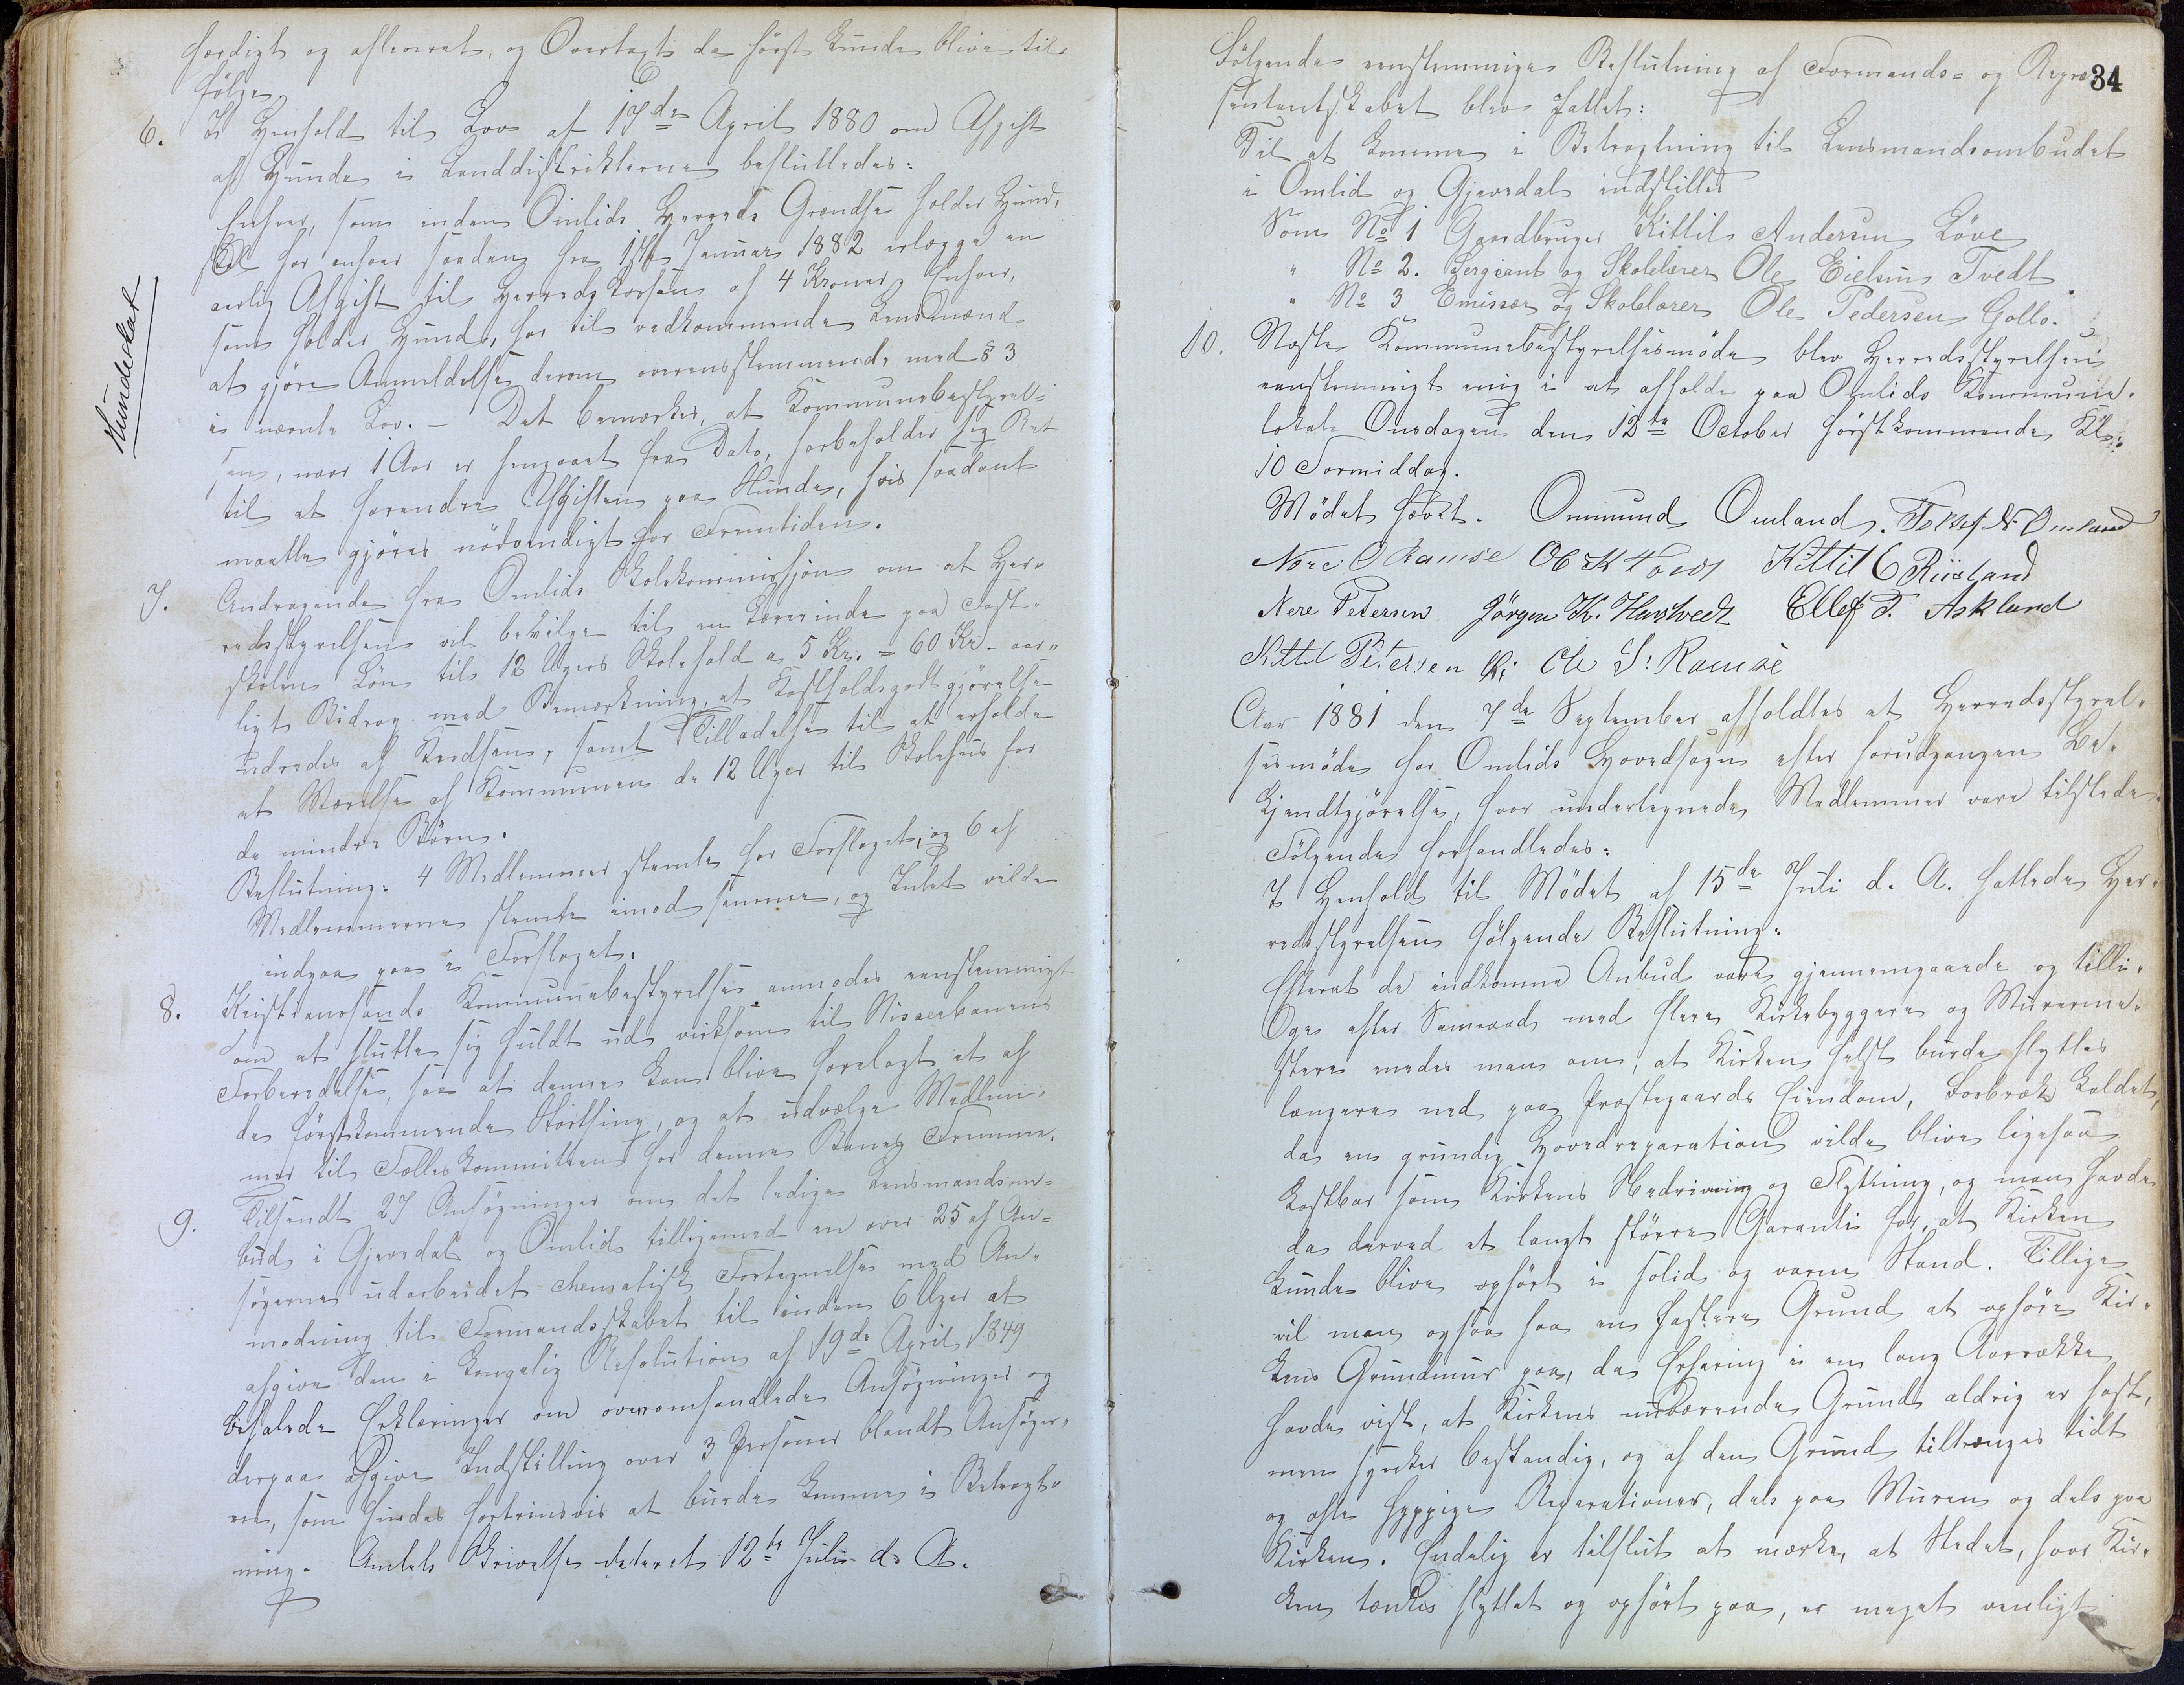 færdigt og afleveret, og Overtagt da först kunde blive til-
fölge.
6. I Henhold til Lov af 17de April 1880 om Afgift
af Hunde i Landdistrikterne besluttedes:
Enhver, som inden Omlids Herreds Grændse holder Hund,
skal for enhver saadan fra 1ste Januar 1882 erlægge en
aarlig Afgift til Herredskassen af 4 Kroner. Enhver,
som holder Hund, har til vedkommende Lensmand
at gjöre Anmeldelse derom overensstemmende med § 3
i nævnte Lov. – Det bemærkes, at Kommunebestyrel-
sen, naar 1 Aar er hengaaet fra Dato, forbeholder sig Ret
til at forandre Afgiften paa Hunde, hvis saadant
maatte gjöres nödvendigt for Fremtiden.
Hundeskat
7. Andragende fra Omlids Skolekommissjon om at Her-
redsstyrelsen vil bevilge til en Lærerinde paa Fast-
skolen Lön til 12 Ugers Skolehold a 5 Kr. = 60 Kr. aar-
ligt Bidrag med Bemærkning, at Kostholdsgodtgjörelse
udredes af Kredsen, samt Tilladelse til at erholde
et Værelse af Kommunen de 12 Uger til Skolehus for
de mindre Börn.
Beslutning: 4 Medlemmer stemte for Forslaget, og 6 af
Medlemmerne stemte imod samme, og Intet vilde
indgaa paa i Forslaget.
8. Kristianssands Kommunebestyrelse anmodes eenstemmigt
om at slutte sig fuldt ud virksom til Nisserbanens
Forberedelse, saa at denne kan blive forelagt et af
de förstkommende Storthing, og at udvælge Medlem-
mer til Fælleskommiteen for denne Banes Fremme.
9. Tilsendt 27 Ansögninger om det ledige Lensmandsom-
bud i Gjevedal og Omlid tilligemed en over 25 af An-
sögerne udarbeidet schematisk Fortegnelse med An-
modning til Formandsskabet til inden 6 Uger at
afgive den i kongelig Resolution af 19de April 1849
befalede Erklæringer om overomhandlede Ansögninger og
derpaa afgive Indstilling over 3 Personer blandt Ansöger-
ne, som findes fortrinsvis at burde komme i Betragt-
ning. Amtets Skrivelse dateret 12te Juli d. A.
34
Fölgende eenstemmige Beslutning af Formands- og Repræ-
sentantskabet blev fattet:
Til at komme i Betragtning til Lensmandsombudet
i Omlid og Gjevedal indstilles
Som No 1 Gaardbruger Kittil Andersen Löve
" No 2. Sergeant og Skolelærer Ole Eielsen Tvedt.
" No 3 Emissær og Skolelærer Ole Pedersen Gollo.
10. Næste Kommunebestyrelsesmöde blev Herredsstyrelsen
eenstemmigt enig i at afholde paa Omlids Kommune-
lokale Onsdagen den 12te October förstkommende Kl.
10 Formiddag.
Mödet hævet. Ommund Omland. Tellef N Omland
Nere O Ramse Ole K Tveit Kittil C Riisland
Nere Petersen Jörgen K. Hanstvedt Ellef T. Askland
Kittil Petersen Ole S: Ramse
Aar 1881 den 7de September afholdtes et Herredsstyrel-
sesmöde for Omlids Hovedsogn efter forudgangen Be-
kjendtgjörelse, hvor undertegnede Medlemmer vare tilstede.
Fölgende forhandledes:
I Henhold til Mödet af 15de Juli d. A. fattede Her-
redsstyrelsen fölgende Beslutning:
Efterat de indkomne Anbud vare gjennemgaaede og tilli-
ge efter Samraad med flere Kirkebyggere og Murerme-
stere enedes man om, at Kirken helst burde flyttes
længere ned paa Præstegaards Eiendom, kaldet,
da en grundig Hovedreparation vilde blive ligesaa
kostbar som Kirkens Nedrivning og Flytning, og man havde
da derved et langt större Garanti for, at Kirken
kunde blive opfört i solid og varm Stand. Tillige
vil man ogsaa faa en fastere Grund at opföre Kir-
kens Grundmur paa, da Erfaring i en lang Aarrække
havde vist, at Kirkens nuværende Grund aldrig er fast,
men synker bestandig, og af den Grund tiltrænges tidt
og ofte hyppige Reperationer, dels paa Muren og dels paa
Kirken. Endelig er tilslut at mærke, at Stedet, hvor Kir-
ken tænkes flyttet og opfört paa, er meget venligt